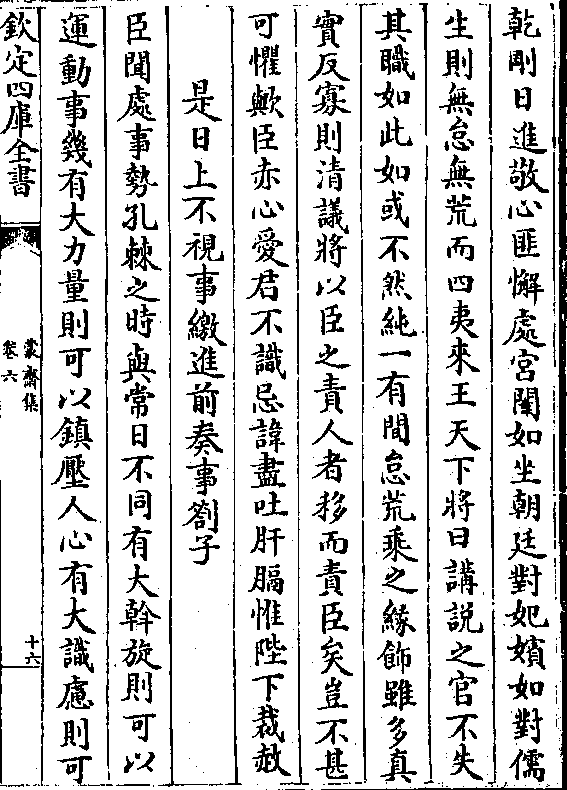 乾剛日進敬心匪懈處宮闈如坐朝廷對妃嬪如對儒
生則無怠無荒而四夷來王天下將曰講説之官不失
其職如此如或不然純一有間怠荒乘之緣飾雖多真
實反寡則清議將以臣之責人者移而責臣矣豈不甚
可懼歟臣赤心愛君不識忌諱盡吐肝膈惟陛下裁赦
是日上不視事繳進前奏事劄子
臣聞處事勢孔棘之時與常日不同有大斡旋則可以
運動事幾有大力量則可以鎮壓人心有大識慮則可
欽定四庫全書
蒙齋集
卷六
十六